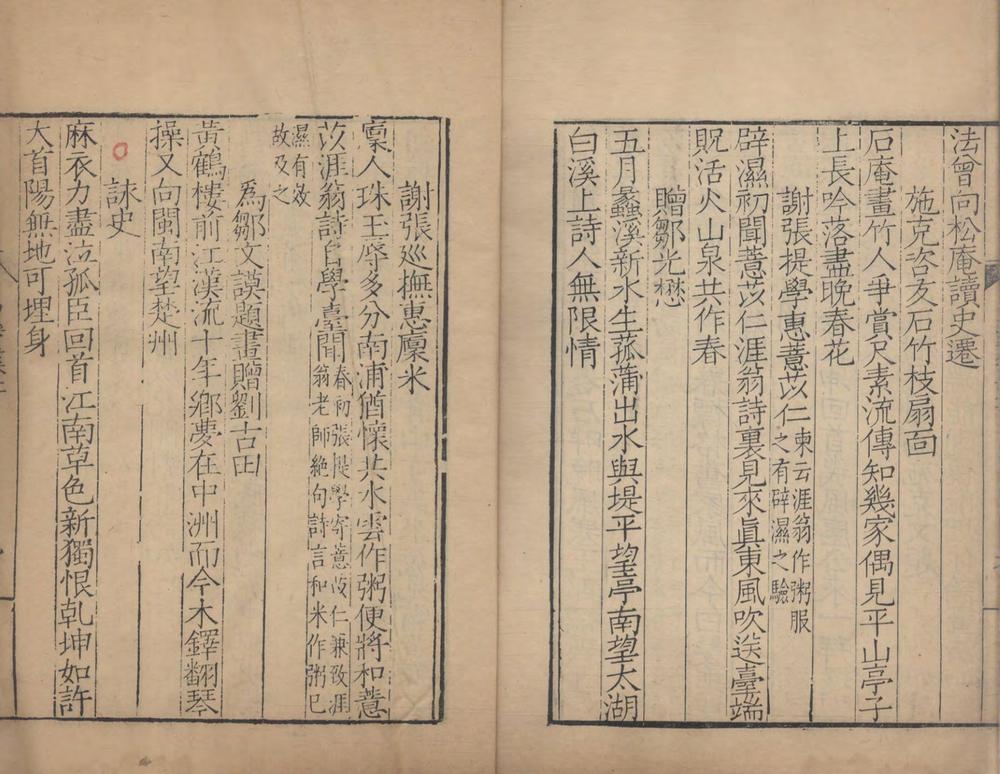 法曾向松庵讀史遷
施克咨友石竹枝扇面
石庵畫竹人爭賞尺素流傳知幾家偶見平山亭子
上長吟落盡晚春花
謝張提學惠薏苡仁柬云涯翁作粥服之有辟濕之驗
辟濕初聞薏苡仁涯翁詩裏見來眞東風吹送臺端
貺活火山泉共作春
贈鄒光懋
五月蠡溪新水生菰蒲出水與堤平望亭南望太湖
白溪上詩人無限情
謝張廵撫惠廩米
廩人珠玉辱多分南浦猶懷共水雲作粥便將和薏
苡涯翁詩自學臺聞春初張提學寄薏苡仁兼致涯翁老師絶句詩言和米作粥已
濕有效故及之
爲鄒文謨題畫贈劉古田
黃鶴樓前江漢流十年鄉夢在中洲而今木鐸翻琴
操又向閩南望楚州
詠史
麻衣力盡泣孤臣回首江南草色新獨恨乾坤如許
大首陽無地可埋身